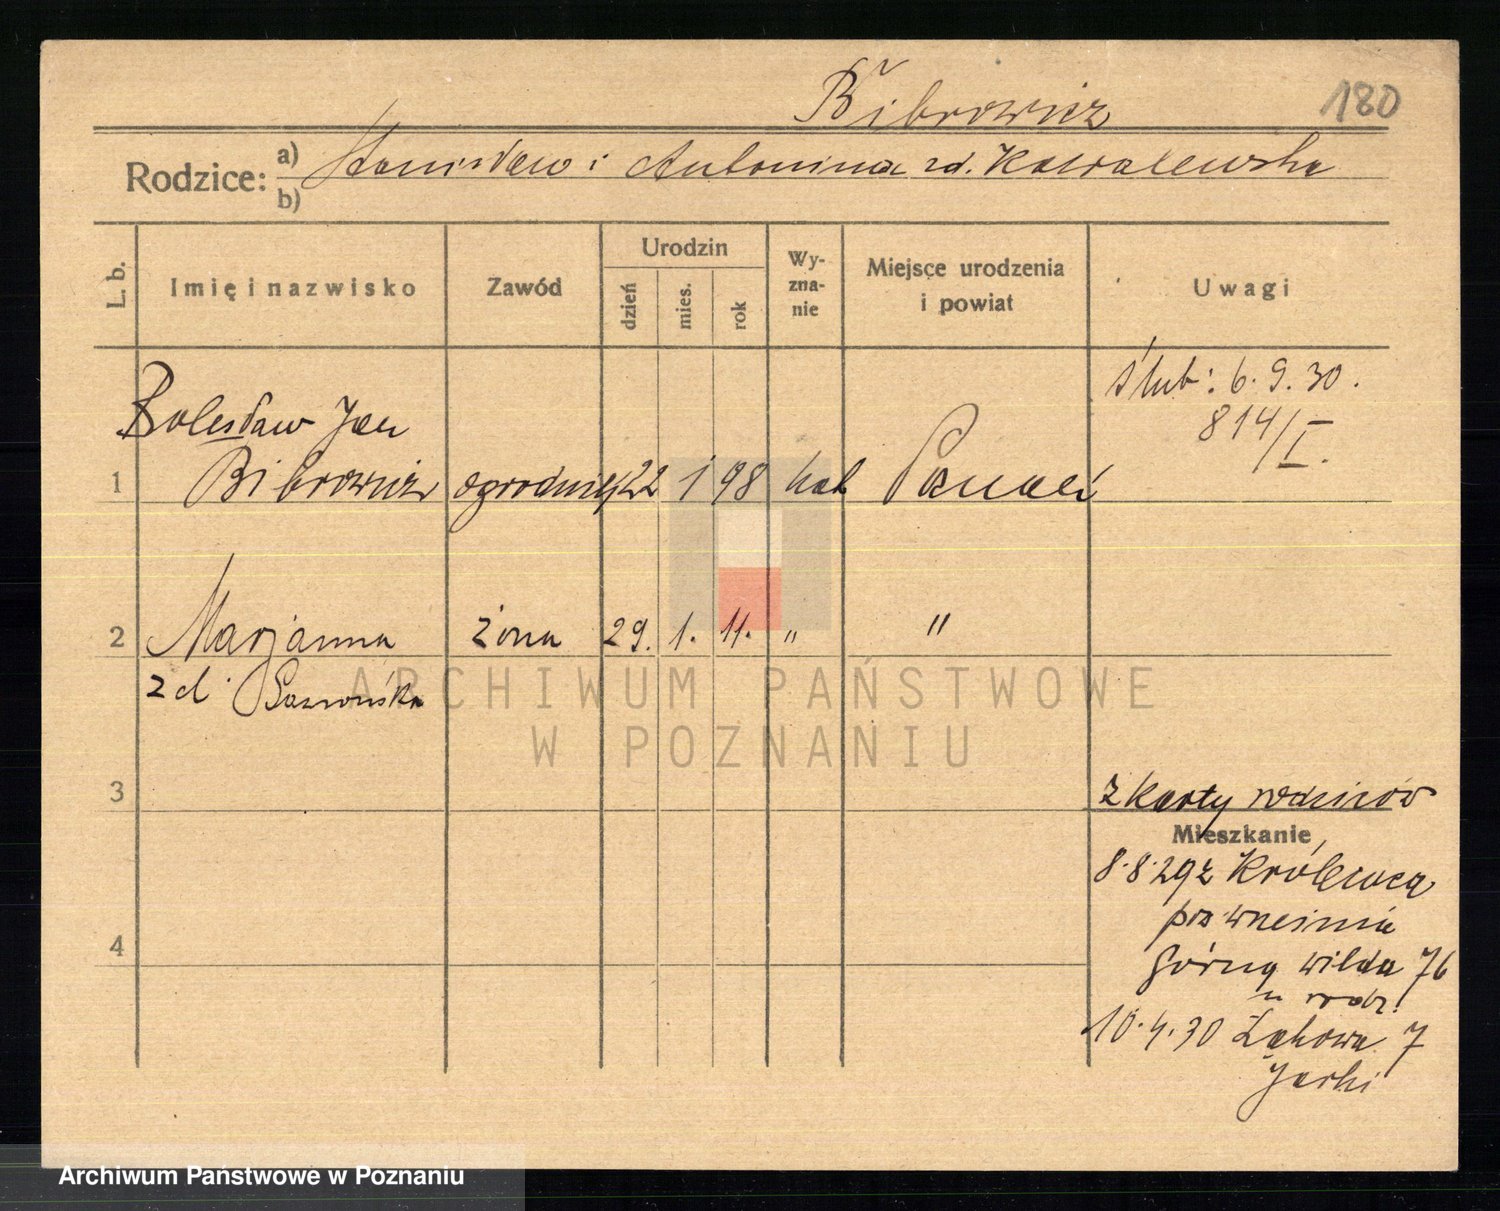 Bibrowicz
180
Rodzice: a) Stanisław i Antonina zd. Kowalewska
b)
L. b.
Imię i nazwisko
Zawód
Urodzin
dzień
mies.
rok
Wy-
zna-
nie
Miejsce urodzenia
i powiat
Uwagi
ślub: 6.9.30.
814/I.
Bolesław Jan
1 Bibrowicz ogrodnik 22 1 98 kat Poznań
2 Marjanna żona 29. 1. 11. " "
zd.
ARCHIWUM PAŃSTWOWE
W POZNANIU
3
z karty rodziców
Mieszkanie
8.8.29 z Królewca
4
Górna Wilda 76
u rodz.
10.4.30 Łąkowa 7
Archiwum Państwowe w Poznaniu